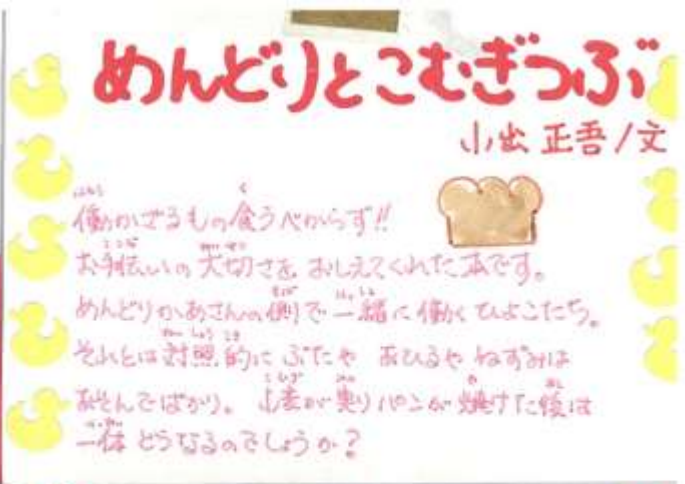 めんどりとこむぎつぶ
小出 正吾/文
働かざるもの食うべからず!!
お手伝いの大切さを おしえてくれた本です。
めんどりかあさんの側で一緒に働く ひよこたち。
それとは対照的に ぶたや あひるや ねずみは
あそんでばかり。小麦が実り パンが焼けた後は
一体 どうなるのでしょうか?